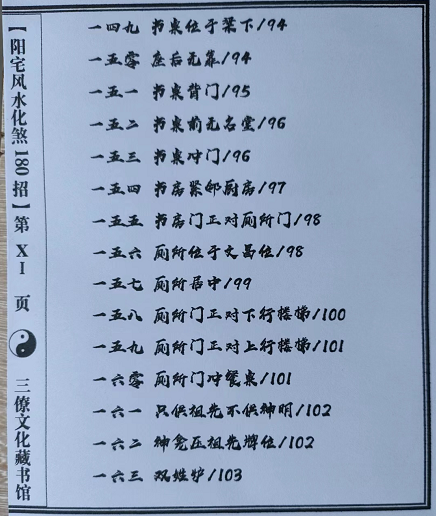 【阳宅风水化煞180招】第 XI 页 三僚文化藏书馆
一四九 书桌位于梁下/94
一五零 座后无靠/94
一五一 书桌背门/95
一五二 书桌前无名堂/96
一五三 书桌冲门/96
一五四 书房紧邻厨房/97
一五五 书房门正对厕所门/98
一五六 厕所位于文昌位/98
一五七 厕所居中/99
一五八 厕所门正对下行楼梯/100
一五九 厕所门正对上行楼梯/101
一六零 厕所门冲餐桌/101
一六一 只供祖先不供神明/102
一六二 神龛压祖先牌位/102
一六三 双姓炉/103